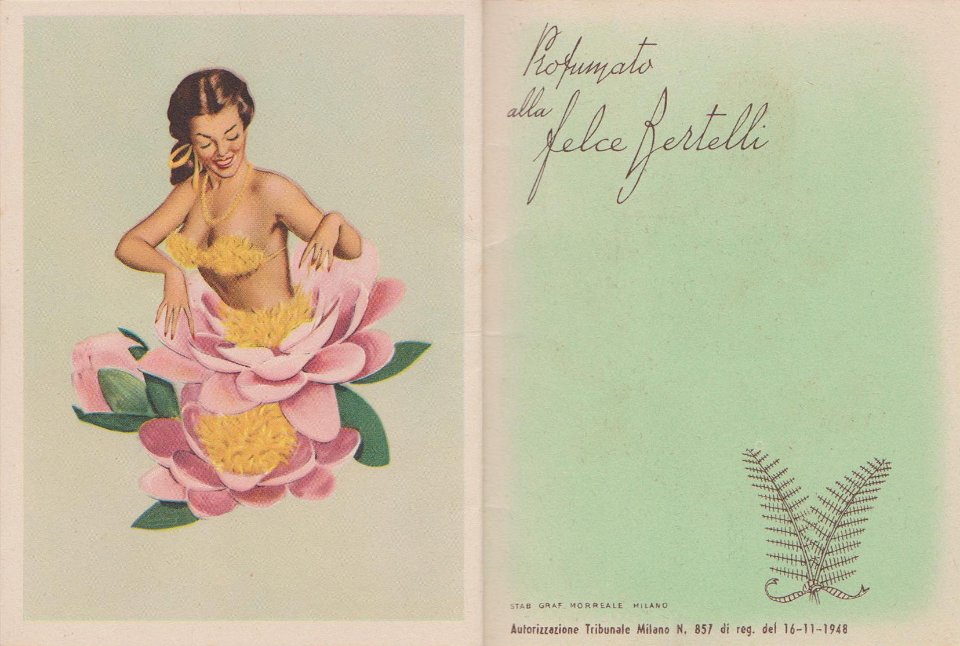 Profumato
alla
felce Bertelli
STAB. GRAF. MORREALE MILANO
Autorizzazione Tribunale Milano N. 857 di reg. del 16-11-1948